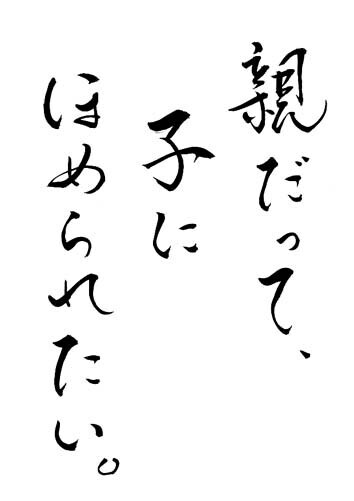 親だって、
子に
ほめられたい。